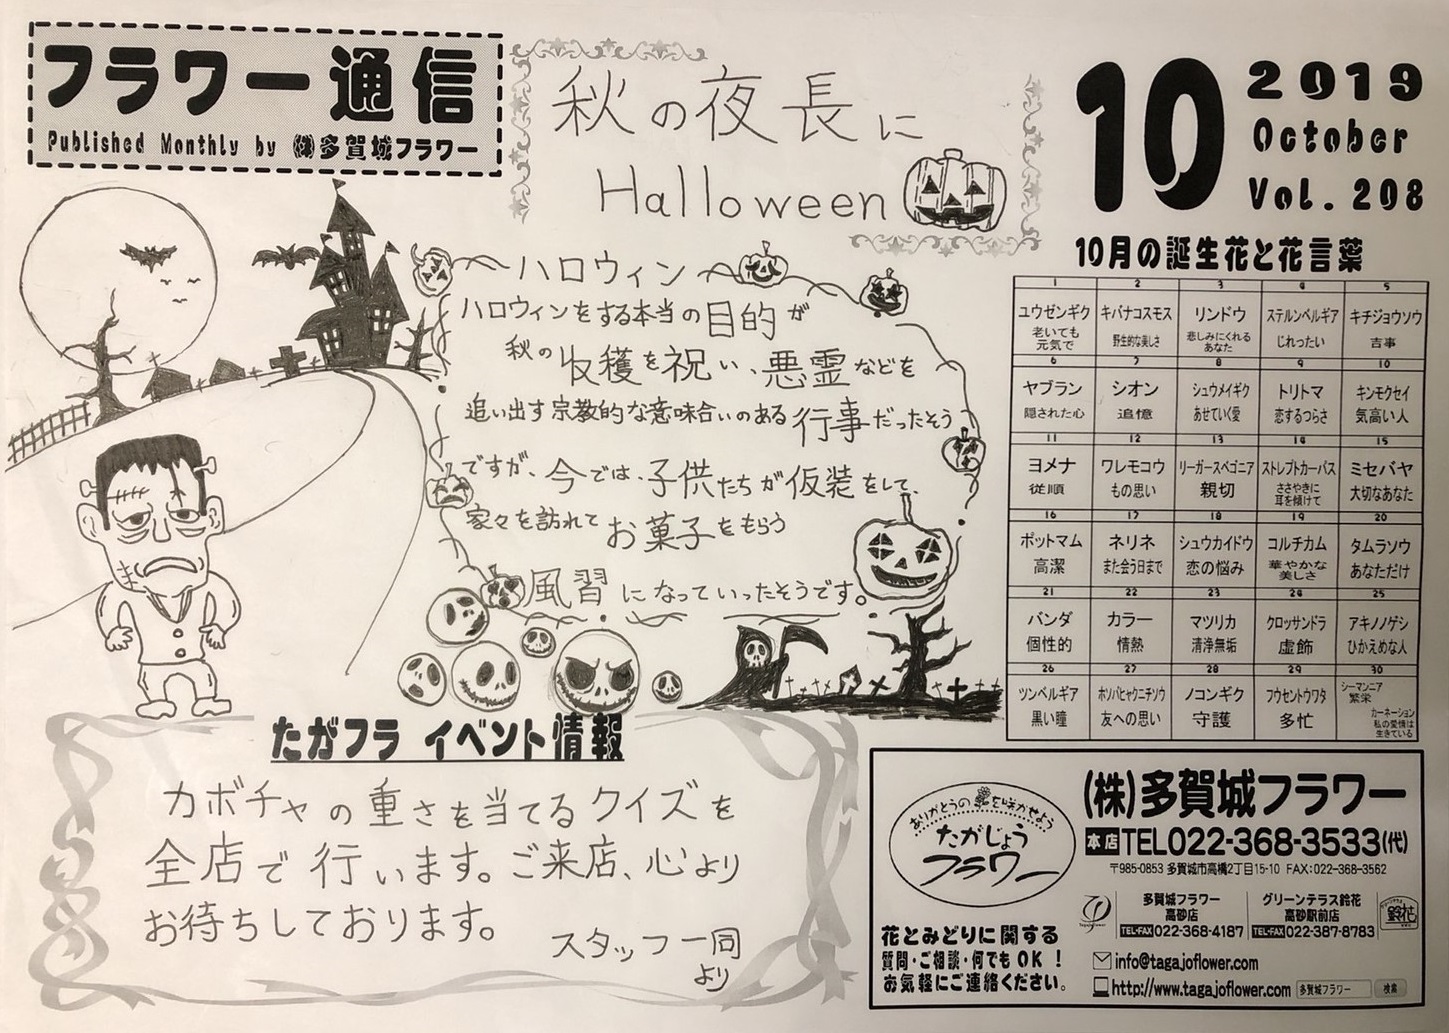 フラワー通信
Published Monthly by ㈱多賀城フラワー
秋の夜長に
Halloween
10
2019
October
Vol. 208
ハロウィン
ハロウィンをする本当の目的が
秋の収穫を祝い、悪霊などを
追い出す宗教的な意味合いのある行事だったそう
ですが、今では、子供たちが仮装をして、
家々を訪れてお菓子をもらう
風習になっていったそうです。
10月の誕生花と花言葉
1 2 3 4 5
ユウゼンギク キバナコスモス リンドウ ステルンベルギア キチジョウソウ
老いても元気で 野生的な美しさ 悲しみにくれるあなた じれったい 吉事
6 7 8 9 10
ヤブラン シオン シュウメイギク トリトマ キンモクセイ
隠された心 追憶 あせていく愛 恋するつらさ 気高い人
11 12 13 14 15
ヨメナ ワレモコウ リーガースベゴニア ストレプトカーパス ミセバヤ
従順 もの思い 親切 ささやきに耳を傾けて 大切なあなた
16 17 18 19 20
ポットマム ネリネ シュウカイドウ コルチカム タムラソウ
高潔 また会う日まで 恋の悩み 華やかな美しさ あなただけ
21 22 23 24 25
バンダ カラー マツリカ クロッサンドラ アキノノゲシ
個性的 情熱 清浄無垢 虚飾 ひかえめな人
26 27 28 29 30
ツンベルギア ホソバヒャクニチソウ ノコンギク フウセントウワタ シーマニア
黒い瞳 友への思い 守護 多忙 繁栄
カーネーション
私の愛情は
生きている
たがフラ イベント情報
カボチャの重さを当てるクイズを
全店で行います。ご来店、心より
お待ちしております。
スタッフ一同
より
ありがとうの花を咲かせよう
たがじょう
フラワー
花とみどりに関する
質問・ご相談・何でもOK！
お気軽にご連絡ください。
(株)多賀城フラワー
本店TEL022-368-3533(代)
〒985-0853 多賀城市高橋2丁目15-10 FAX:022-368-3562
多賀城フラワー
高砂店
TEL・FAX022-368-4187
グリーンテラス鈴花
高砂駅前店
TEL・FAX022-387-8783
鈴花
info@tagajoflower.com
http://www.tagajoflower.com 多賀城フラワー 検索